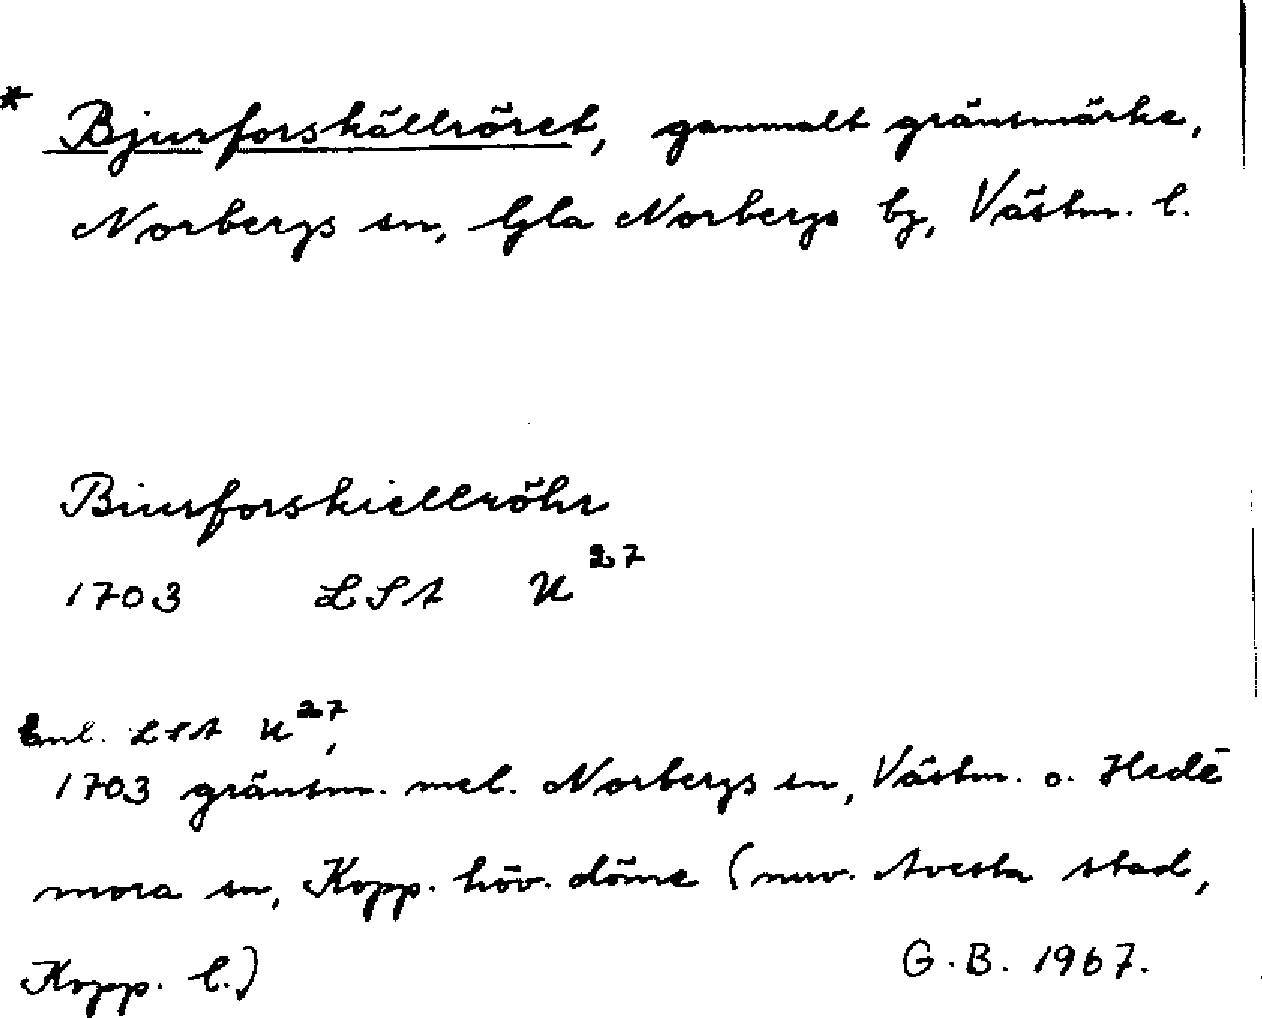 * Bjurforskällröret, gammalt gränsmärke,
Norbergs sn, Gla Norbergs by, Västm. l.
Biurforskiellröhr
1703 LSA U²⁷
Enl. LSA U²⁷,
1703 gränsm. mel. Norbergs sn, Västm. o. Hede
mora sn, Kopp. höv. döme (nuv. Avesta stad,
Kopp. l.)
G.B. 1967.